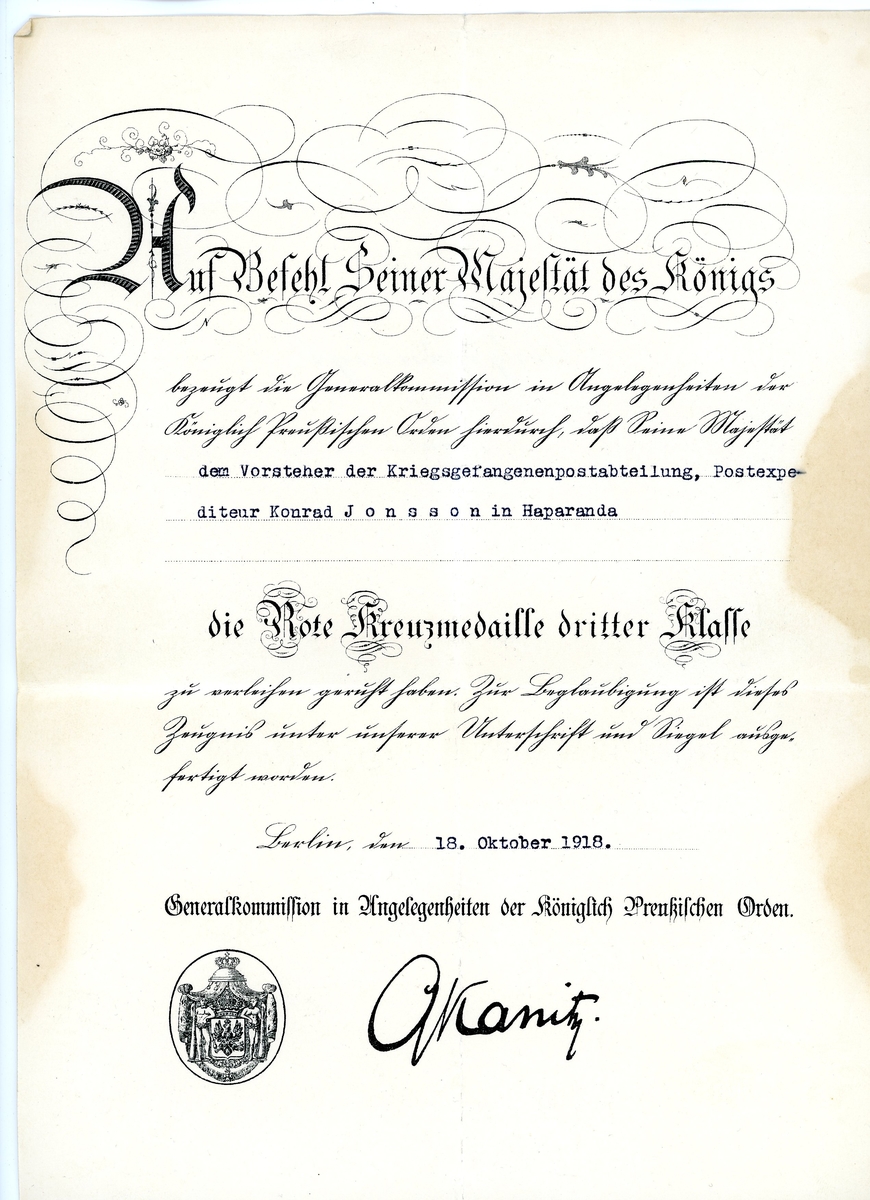 Auf Befehl Seiner Majestät des Königs
bezeugt die Generalkommission in Angelegenheiten der
Königlich Preußischen Orden hierdurch, daß Seine Majestät
dem Vorsteher der Kriegsgefangenenpostabteilung, Postexpe-
diteur Konrad J o n s s o n in Haparanda
die Rote Kreuzmedaille dritter Klasse
zu verleihen geruht haben. Zur Beglaubigung ist dieses
Zeugnis unter unserer Unterschrift und Siegel ausge-
fertigt worden.
Berlin, den 18. Oktober 1918.
Generalkommission in Angelegenheiten der Königlich Preußischen Orden.
Kanitz.